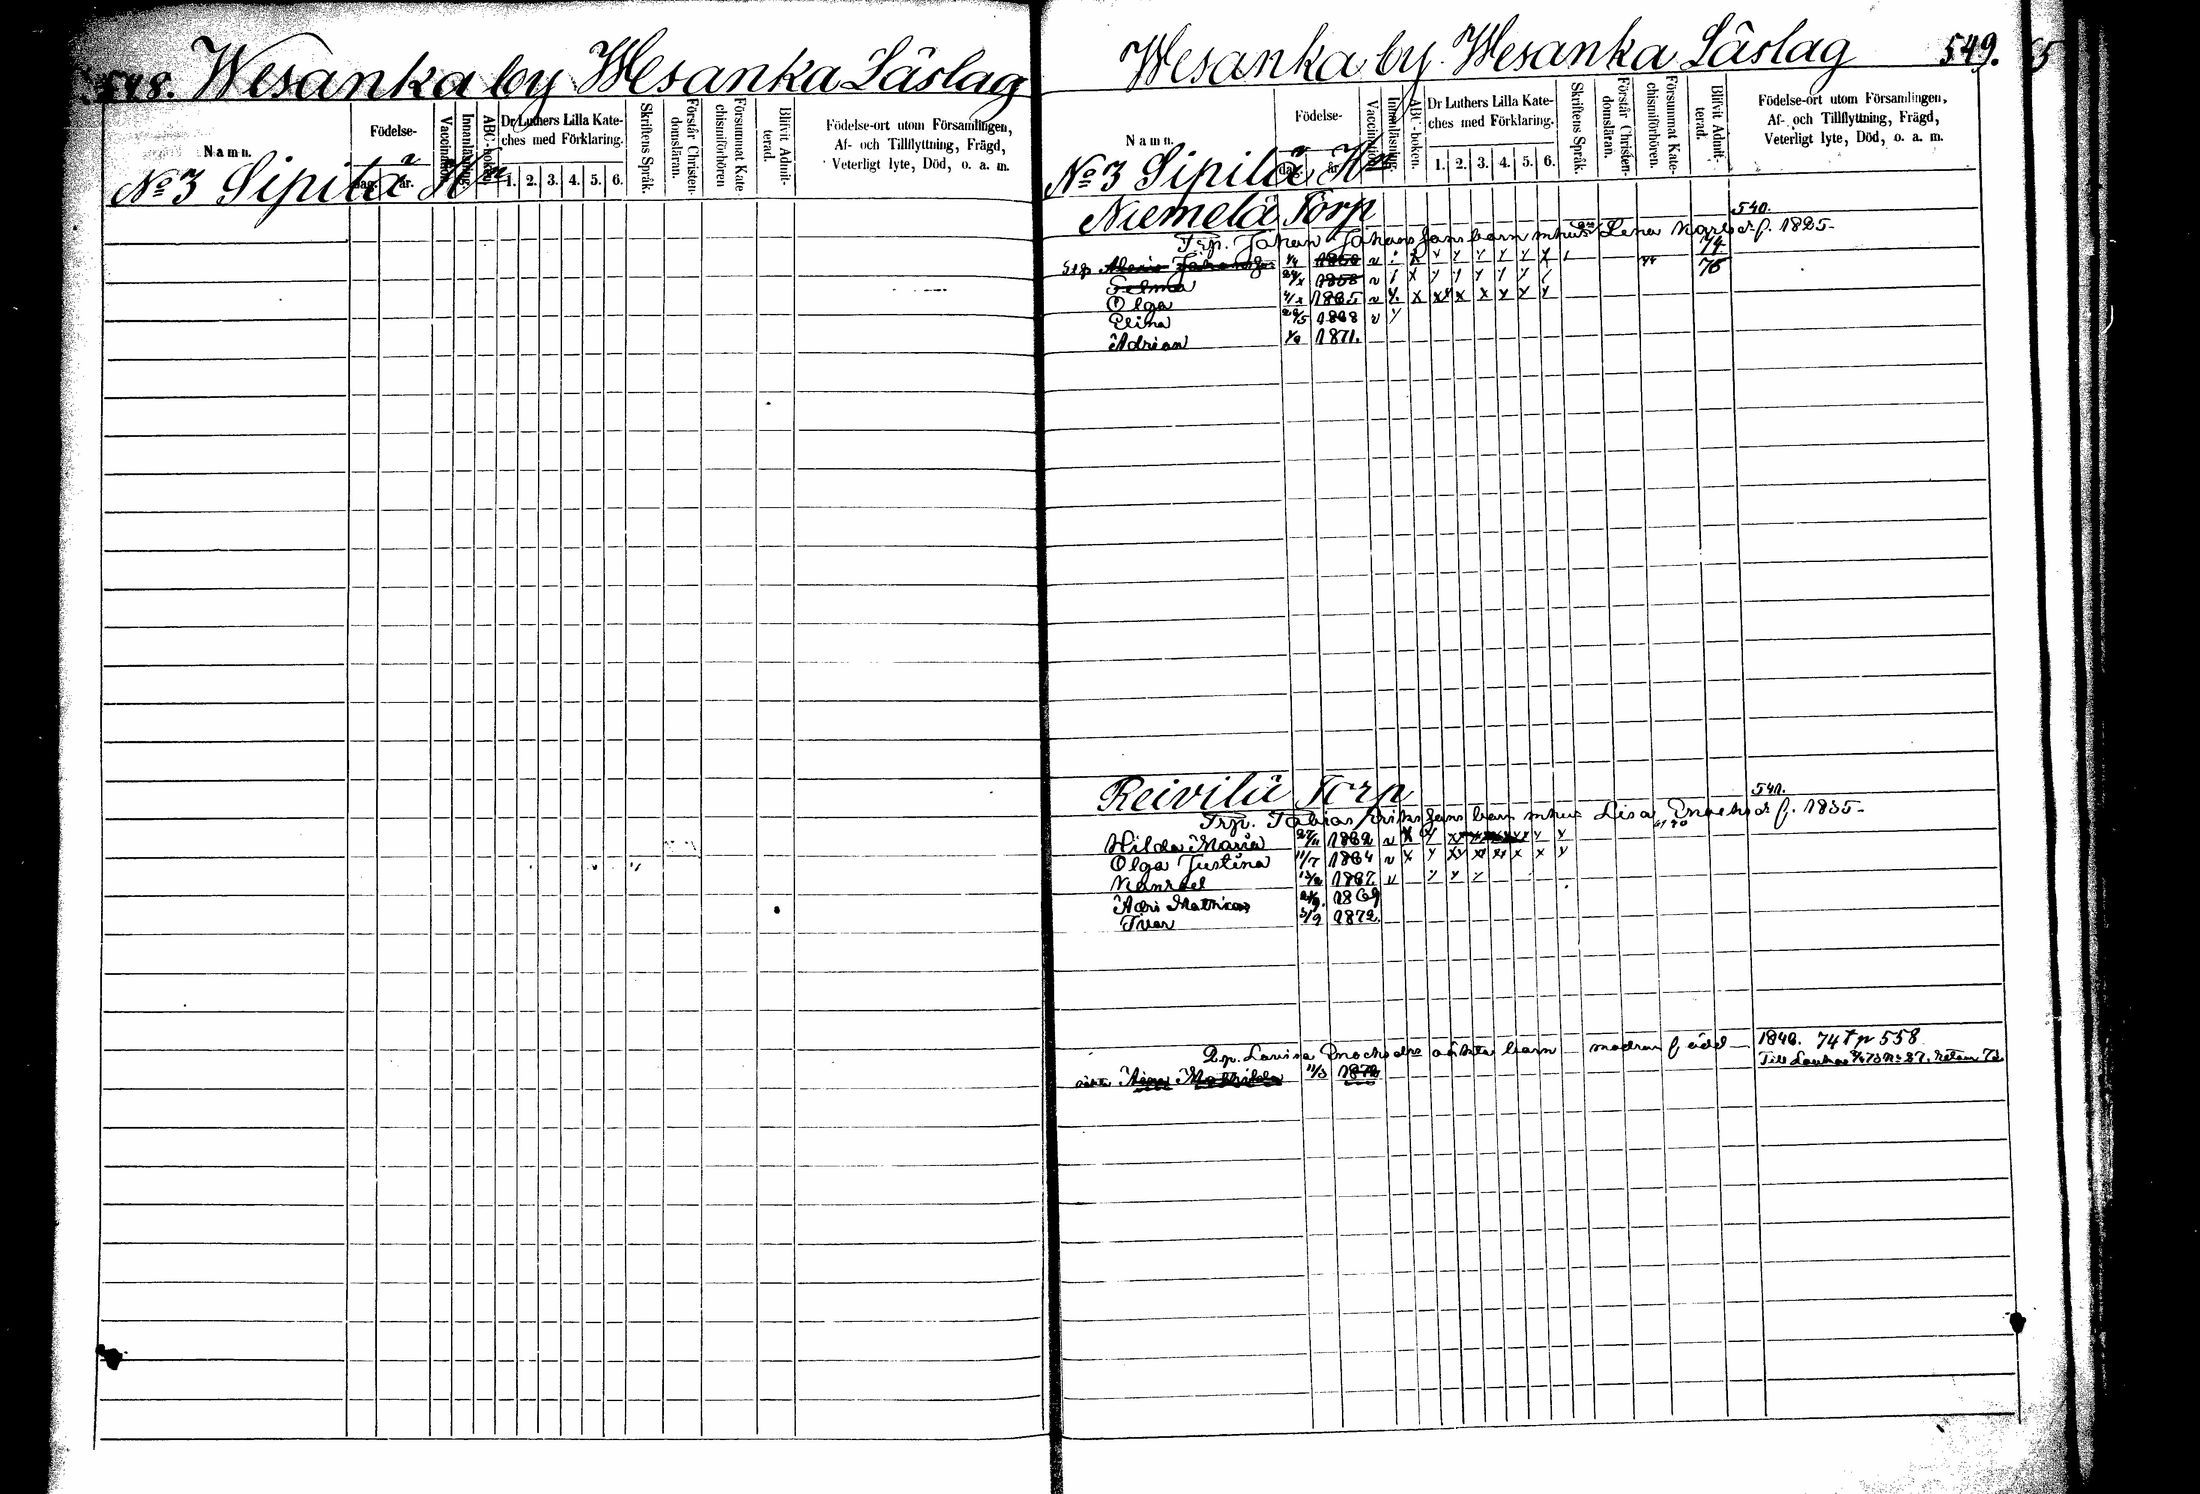 548. Wesanka by Wesanka Läslag
Namn.
Födelse-
dag. år.
Vaccination.
Innanläsning.
ABC-boken.
Dr Luthers Lilla Kate-
ches med Förklaring.
1. 2. 3. 4. 5. 6.
Skriftens Språk.
Förstår Christen-
domsläran.
Försummat Kate-
chismiförhören
Blifvit Admit-
terad.
Födelse-ort utom Församlingen,
Af- och Tillflyttning, Frägd,
Veterligt lyte, Död, o. a. m.
No 3 Sipilä Hn
Wesanka by. Wesanka Läslag 549.
Namn.
Födelse-
dag. år.
Vaccination.
Innanläsning.
ABC-boken.
Dr Luthers Lilla Kate-
ches med Förklaring.
1. 2. 3. 4. 5. 6.
Skriftens Språk.
Förstår Christen-
domsläran.
Försummat Kate-
chismiförhören.
Blifvit Admit-
terad.
Födelse-ort utom Församlingen,
Af- och Tillflyttning, Frägd,
Veterligt lyte, Död, o. a. m.
No 3 Sipilä Hn
Niemelä Torp
540.
Trp. Johan Johanssons barn m hus Lena Karlsdr f. 1825
Johansson 1/4 v 74
Selma 1858 v 76
Olga 1865 v
Elina 29/5 1868 v
Adrian 1871.
Reivilä Torp
541.
Trp. Tobias Erikssons barn m hus Lisa Enochsdr f. 1835
Hilda Maria 1862 v
Olga Justina 11/7 1864 v
Manuel 1867. v
Adri Matthias 1869
Ivar 3/9 1872.
Lovisa Enochsdrs oäkta barn modren född 1840. 74 T p 558
Mathilda 11/3 1872